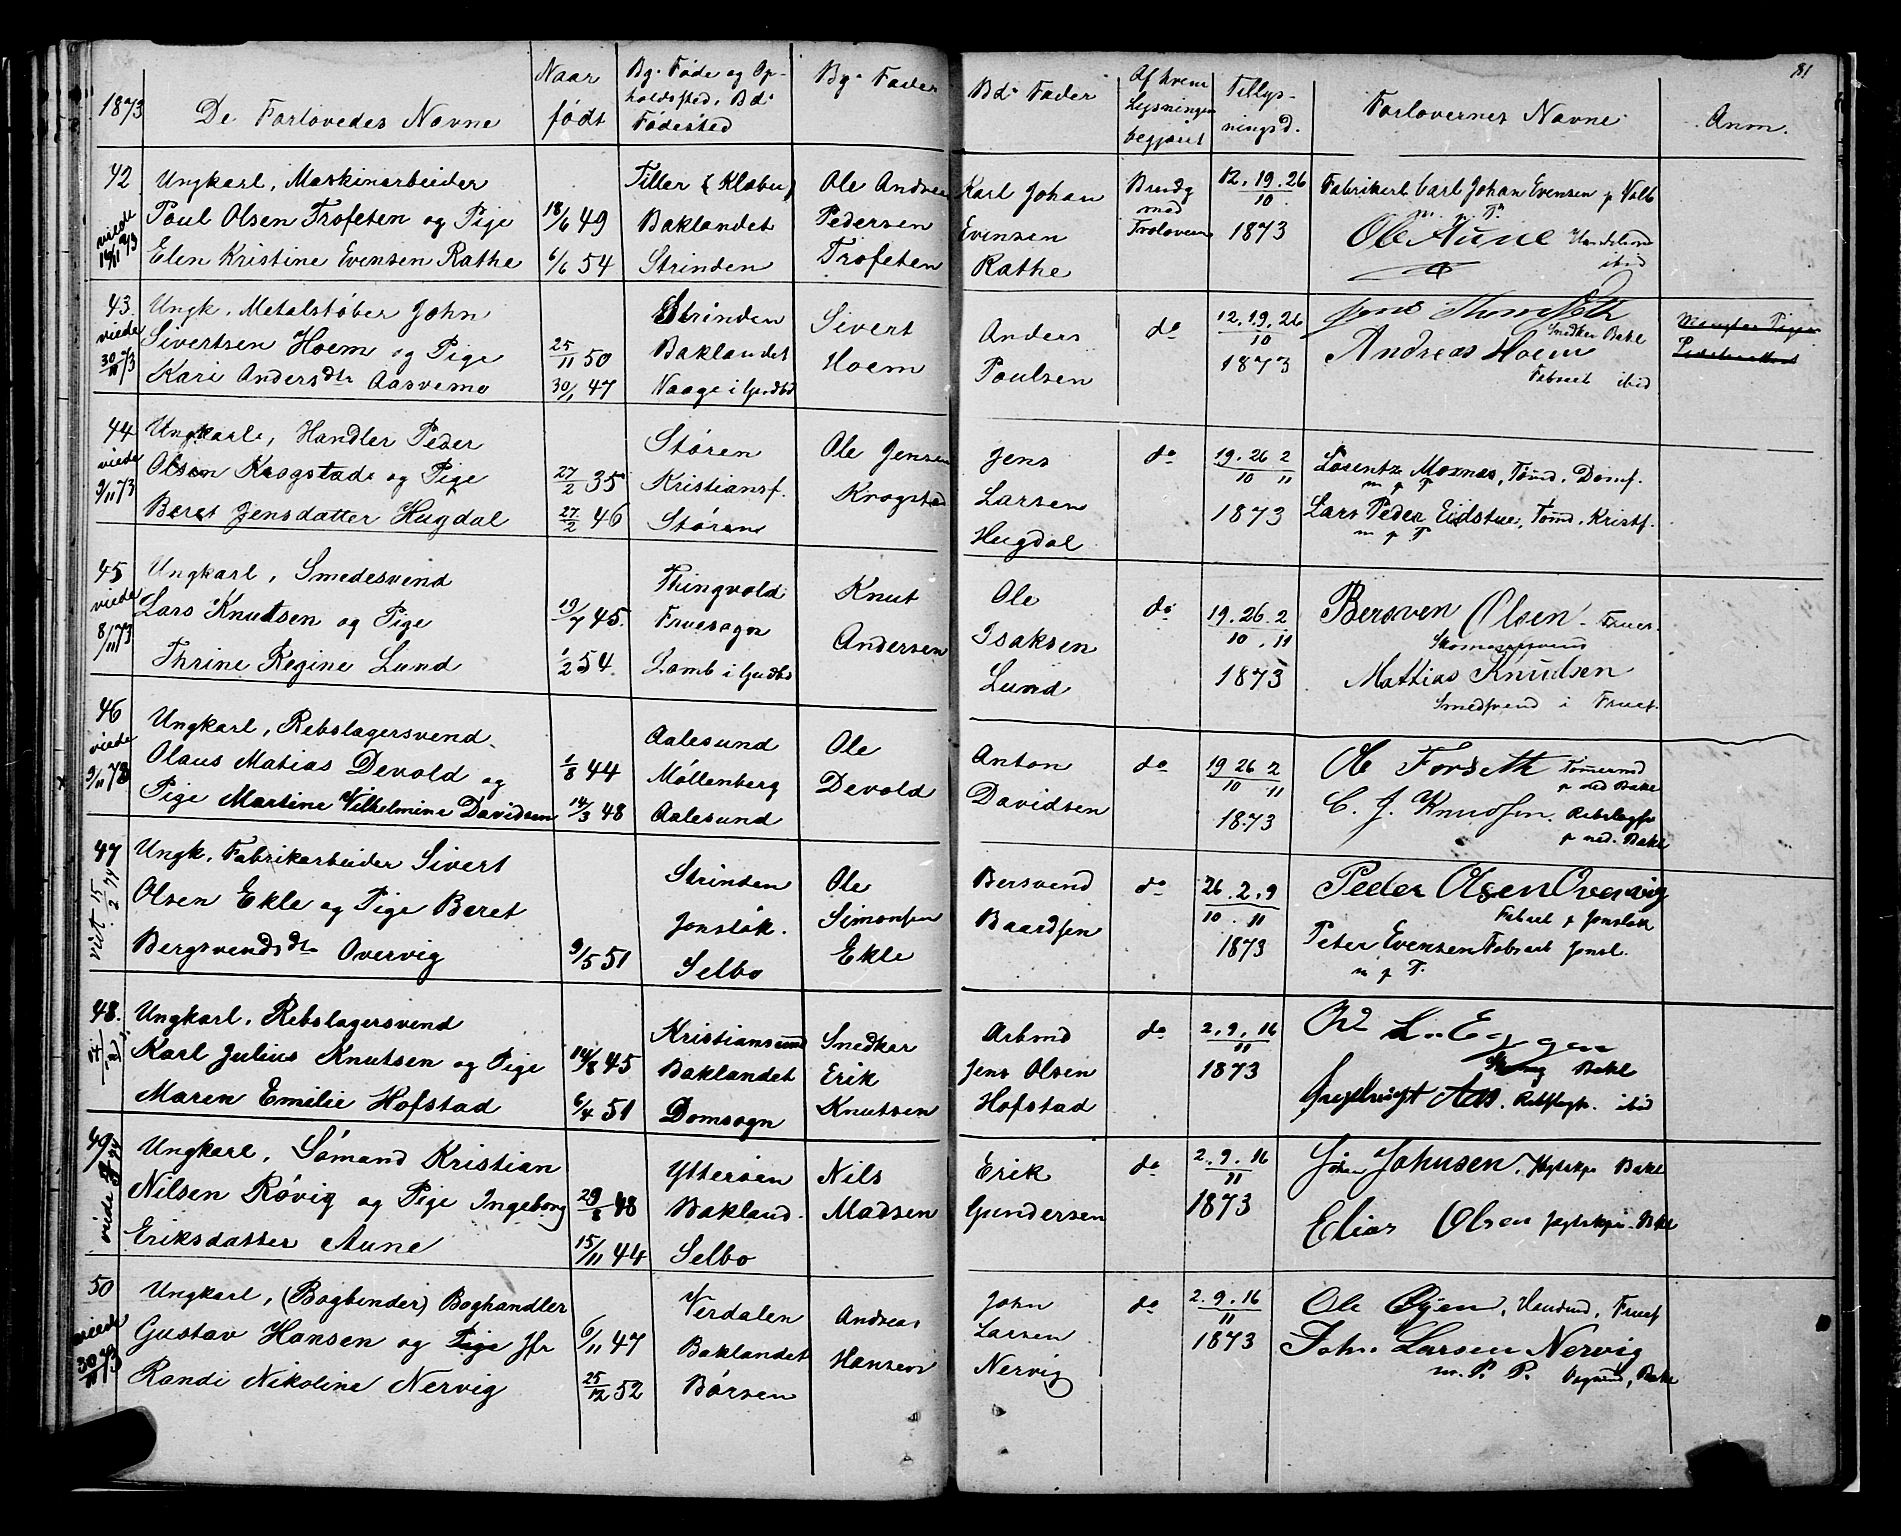 1873
De Forlovedes Navne
Naar født
Bg. Føde og Op-
holdssted. Bd.
Fødested
Bg. Fader
Bd. Fader
Af hvem
Lysningen
begjæret
Tillys-
ningsd.
Forlovernes Navne
Anm.
81
42
viede
Ungkarl, Maskinarbeider
Poul Olsen Trofeten og Pige
Elen Kristine Evensen Rathe
18/6 49
6/6 54
Tiller (Klæbu)
Baklandet
Strinden
Ole Andreas
Pedersen
Trofeten
Karl Johan
Evensen
Rathe
Brudg
med
Troloveren
12. 19. 26
10
1873
Fabrikarb Carl Johan Evensen p
m. p. P.
Ole Aune
ibid
43.
viede
30/11 73
Ungk. Metalstøber John
Sivertsen Hoem og Pige
Kari Andersdtr Aasvemo
25/11 50
30/1 47
Strinden
Baklandet
Sivert
Hoem
Anders
Poulsen
do
12. 19. 26
10
1873
Snedker Bakl
Andreas Hoem
Fabrarb ibid
44
viede
9/11 73
Ungkarl, Handler Peder
Olsen Krogstad og Pige
Beret Jensdatter Hugdal
27/2 35
27/2 46
Støren
Kristiansf.
Støren
Ole Jensen
Krogstad
Jens
Larsen
Hugdal
do
19. 26 2
10 11
1873
Losentz Moxnas, Tømd. Domf.
m p P
Lars Peder Eidstue, Tømd. Kristf.
m p P
45
viede
8/11 73
Ungkarl, Smedesvend
Lars Knutsen og Pige
Thrine Regine Lund
19/7 45.
1/2 54.
Thingvold
Fruesogn
Knut
Andersen
Ole
Isaksen
Lund
do
19. 26. 2
10. 11
1873
Bersven Olsen Frues.
Skomagersvend
Mattias Knudsen
Smedsvend i Fruef.
46
viede
9/11 73
Ungkarl, Rebslagersvend
Olaus Matias Devold og
Pige Martine Vilhelmine Davidsen
1/8 44
14/3 48
Aalesund
Møllenberg
Aalesund
Ole
Devold
Anton
Davidsen
do
19 26 2
10 11
1873
Ole Forseth Tømermd
p ned Bakl
C. J. Knudsen. Rebslagsv
p ned. Bakl
47
viet 15/2 74
Ungk. Fabrikarbeider Sivert
Olsen Ekle og Pige Beret
Bergsvendsdtr Overvig
9/5 51
Strinden
Jonsløk.
Selbo
Ole
Simonsen
Ekle
Bersvend
Baardsen
do
26. 2. 9
10. 11
1873
Peder Olsen Overvig
Fabarb p Jonsløk
Peter Evensen Fabrarb Jonsl.
m p P.
48.
Ungkarl, Rebslagersvend
Karl Julius Knutsen og Pige
Maren Emilie Hofstad
14/8 45
6/4 51
Kristianssund
Baklandet
Domsogn
Snedker
Erik
Knutsen
Arbmd
Jens Olsen
Hofstad
do
2. 9. 16
11
1873
L. Eggen
Bakl
Ingebrigt Aas. Rebslagsv. ibid
49
viede
Ungkarl, Sømand Kristian
Nilsen Røvig og Pige Ingeborg
Eriksdatter Aune
29/8 48
15/11 44
Ytterøen
Bakland.
Selbo
Nils
Madsen
Erik
Gundersen
do
2. 9. 16
11
1873
Johan Johnsen. Jagtskpr Bakl
Elias Olsen Jagtskpr. Bakl
50
viede
30/11 73
Ungkarl, (Bogbinder) Boghandler
Gustav Hansen og Pige Jfr
Randi Nikoline Nervig
6/11 47
25/12 52
Verdalen
Baklandet
Børsen
Andreas
Hansen
John
Larsen
Nervig
do
2. 9. 16
11
1873
Ole Øyen, Fruef
John Larsen Nervig
m. P. P. Bakl